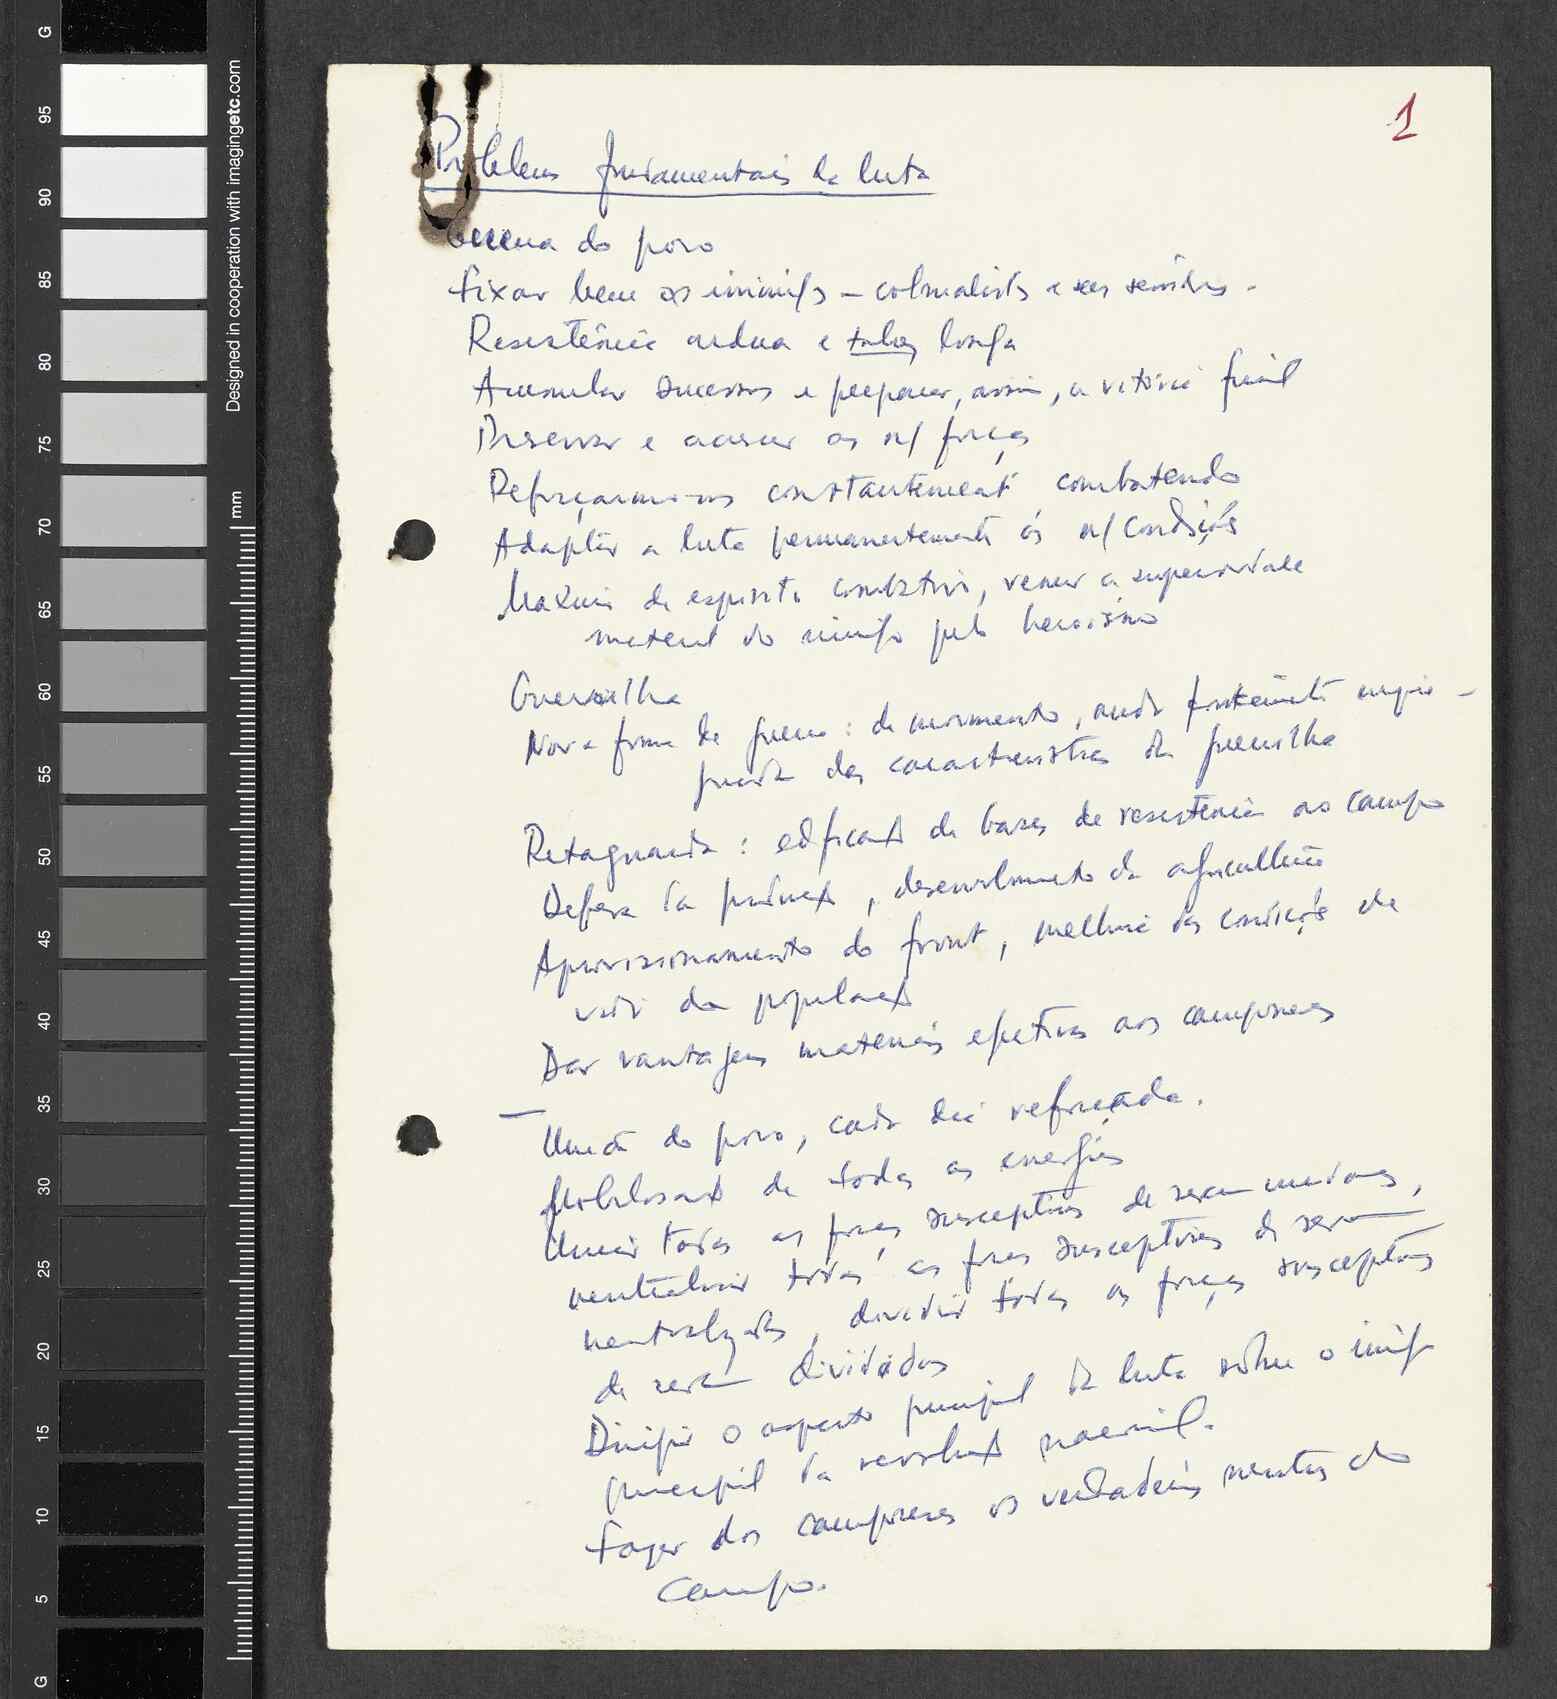 1
Problemas fundamentais da luta
Guerra do povo
Fixar bem os inimigos – colonialistas e seus servidores.
Resistência ardua e talvez longa
Acumular sucessos e preparar, assim, a vitória final
Preservar e acrescer as n/ forças
Reforçarmo-nos constantemente combatendo
Adaptar a luta permanentemente ás n/ condições
Maximo de espirito combativo, vencer a superioridade
material do inimigo pelo heroismo
Guerrilha
Nova forma de guerra: de movimento, ainda fortemente impre-
gnada das caracteristicas da guerrilha
Retaguarda: edificação de bases de resistencia no campo
Defesa da produção, desenvolvimento da agricultura
Aprovisionamento do front, melhoria das condições de
vida da população
Dar vantagens materiais efectivas aos camponeses
— União do povo, cada dia reforçada.
Mobilização de todas as energias
Unir todas as forças susceptiveis de serem unidas,
neutralizar todas as forças susceptiveis de serem
neutralizadas, dividir todas as forças susceptiveis
de serem divididas
Dirigir o aspecto principal da luta sobre o inimigo
principal da revolução nacional.
Fazer dos camponeses os verdadeiros mestres do
campo.
Designed in cooperation with imagingetc.com
mm
G
95
90
85
80
75
70
65
60
55
50
45
40
35
30
25
20
15
10
5
G